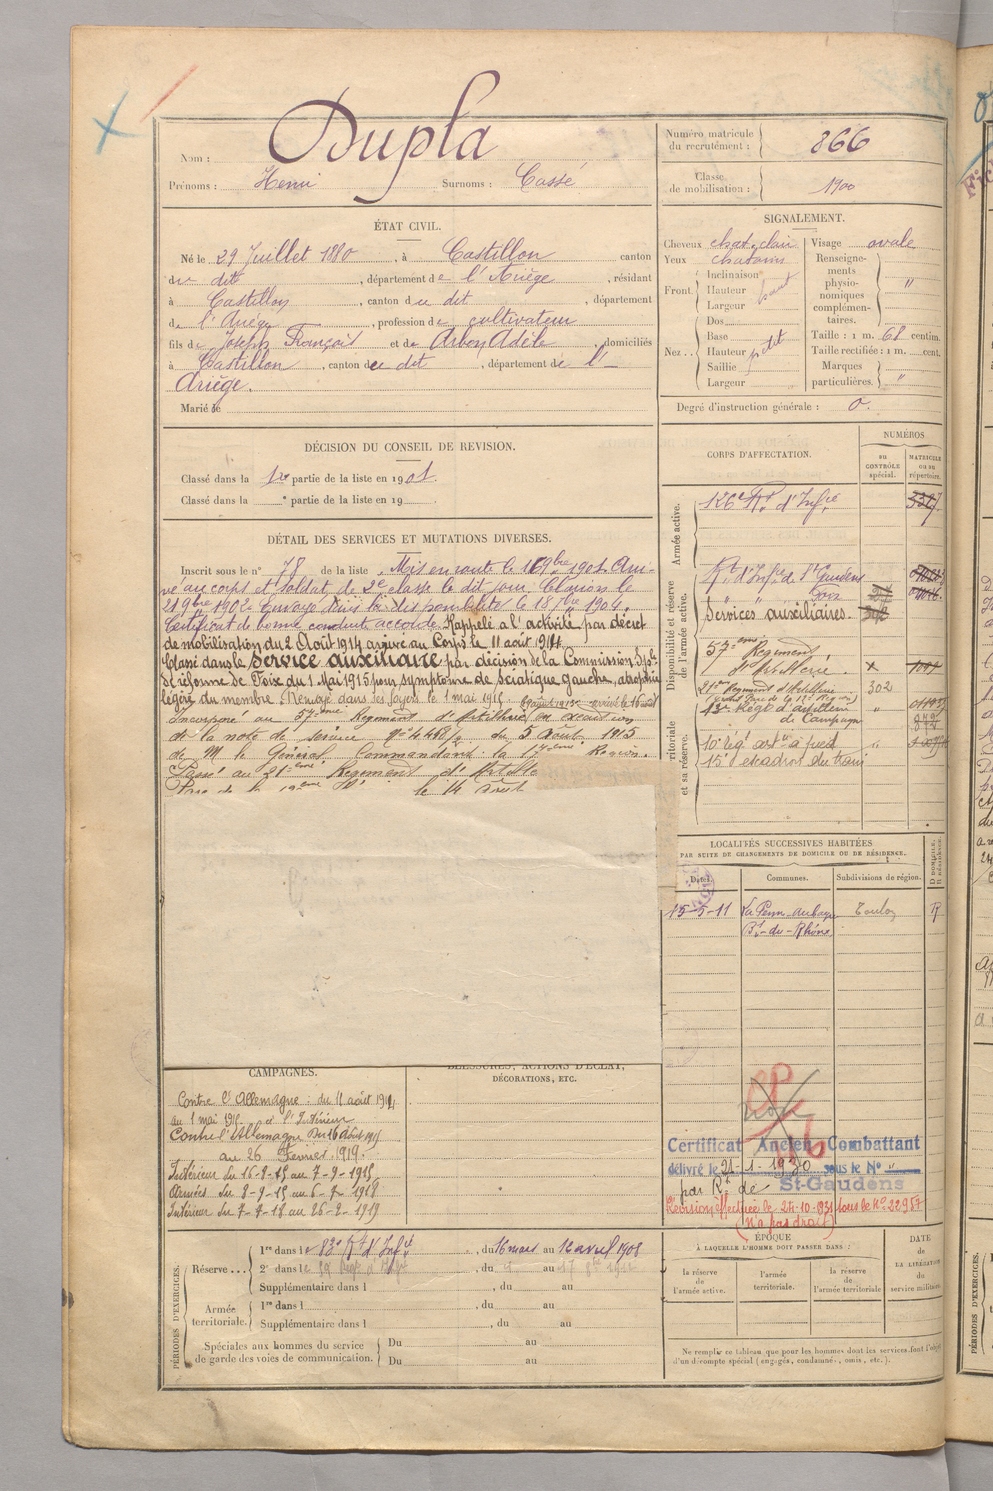 Nom : Dupla
Prénoms : Henri Surnoms : Cassé
Numéro matricule du recrutement : 866
Classe de mobilisation : 1900
ÉTAT CIVIL.
Né le 29 Juillet 1880, à Castillon canton
du dit, département de l'Ariège, résidant
à Castillon, canton du dit, département
de l'Ariège, profession de cultivateur
fils de Joseph François et de Arbon Adèle, domiciliés
à Castillon, canton du dit, département de l'
Ariège.
Marié à
SIGNALEMENT.
Cheveux chat. clair
Yeux chatains
Front Inclinaison
Hauteur haut
Largeur
Nez Dos
Base
Hauteur petit
Saillie
Largeur
Visage ovale
Renseignements physionomiques complémentaires. "
Taille : 1 m. 68 centim.
Taille rectifiée : 1 m. cent.
Marques particulières. "
Degré d'instruction générale : 0.
DÉCISION DU CONSEIL DE REVISION.
Classé dans la 1re partie de la liste en 1901.
Classé dans la e partie de la liste en 19
DÉTAIL DES SERVICES ET MUTATIONS DIVERSES.
Inscrit sous le n° 78 de la liste. Mis en route le 16 9bre 1901. Arri-
vé au corps et soldat de 2e classe le dit jour.
Certificat de bonne conduite accordé. Rappelé à l'activité par décret
de mobilisation du 2 Août 1914 arrivé au Corps le 11 août 1914
Classé dans le service auxiliaire par décision de la Commission Sple
de réforme de Foix du 1 Mai 1915 pour symptome de sciatique gauche, atrophie
légère du membre. Renvoyé dans ses foyers le 1 mai 1915.
Incorporé au 57eme Régiment d'Artillerie en exécution
de la note de service du 5 Août 1915
de M le Général Commandant la 17eme Région.
Passé au 21eme Régiment d'Artille
le 14 août
CORPS D'AFFECTATION.
NUMÉROS
AU CONTRÔLE SPÉCIAL.
MATRICULE OU AU RÉPERTOIRE.
Armée active.
126e Rt d'Infie
Disponibilité et réserve de l'armée active.
Rt d'Inf. de St Gaudens
" " " Foix
Services auxiliaires.
57eme Régiment
d'Artillerie
21eme Régiment d'Artillerie 302
13e Régt d'artillerie
de Campagne
territoriale et sa réserve.
10e régt artie à pied "
15e escadron du train
LOCALITÉS SUCCESSIVES HABITÉES
PAR SUITE DE CHANGEMENTS DE DOMICILE OU DE RÉSIDENCE.
Dates. Communes. Subdivisions de région. D DOMICILE. R RÉSIDENCE.
15-5-11 La Penne-Aubagne Toulon R
B.-du-Rhône
CAMPAGNES.
Contre l'Allemagne : du 11 août 1914
au 1 mai 1915 et l'Intérieur
Contre l'Allemagne Du 16 Août 1915
au 26 Février 1919.
Intérieur du 16-8-15 au 7-9-1915
Armées du 8-9-15 au 6-7-1918
Intérieur du 7-7-18 au 26-2-1919
BLESSURES, ACTIONS D'ÉCLAT,
DÉCORATIONS, ETC.
Certificat Ancien Combattant
délivré le 21-1-1930 sous le N° "
par Rt de St-Gaudens
Révision effectuée le 24-10-1931 sous le N° 22957
(n'a pas droit)
PÉRIODES D'EXERCICES.
Réserve 1re dans le 83e Rt d'Infie, du 16 mars au 12 avril 1908
2e dans le, du au
Supplémentaire dans l, du au
Armée territoriale. 1re dans l, du au
Supplémentaire dans l, du au
Spéciales aux hommes du service de garde des voies de communication. Du au
Du au
ÉPOQUE
À LAQUELLE L'HOMME DOIT PASSER DANS :
la réserve de l'armée active.
l'armée territoriale.
la réserve de l'armée territoriale
DATE de LA LIBÉRATION du service militaire.
Ne remplir ce tableau que pour les hommes dont les services font l'objet
d'un décompte spécial (engagés, condamnés, omis, etc.).